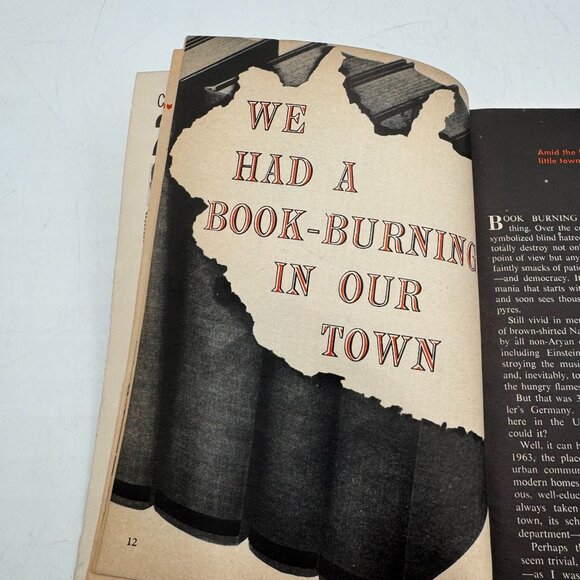 WE
HAD A
BOOK-BURNING
IN OUR
TOWN
12
Amid the
little town
BOOK BURNING
thing. Over the
symbolized blind
totally destroy not
point of view but any
faintly smacks of
—and democracy.
mania that starts
and soon sees
pyres.
Still vivid in
of brown-shirted
by all non-Aryan
including Einstein
stroying the
and, inevitably,
the hungry flames
But that was
ler's Germany.
here in the
could it?
Well, it can
1963, the
urban
modern homes
ous,
always taken
town, its
department—
Perhaps
seem trivial,
—as I was